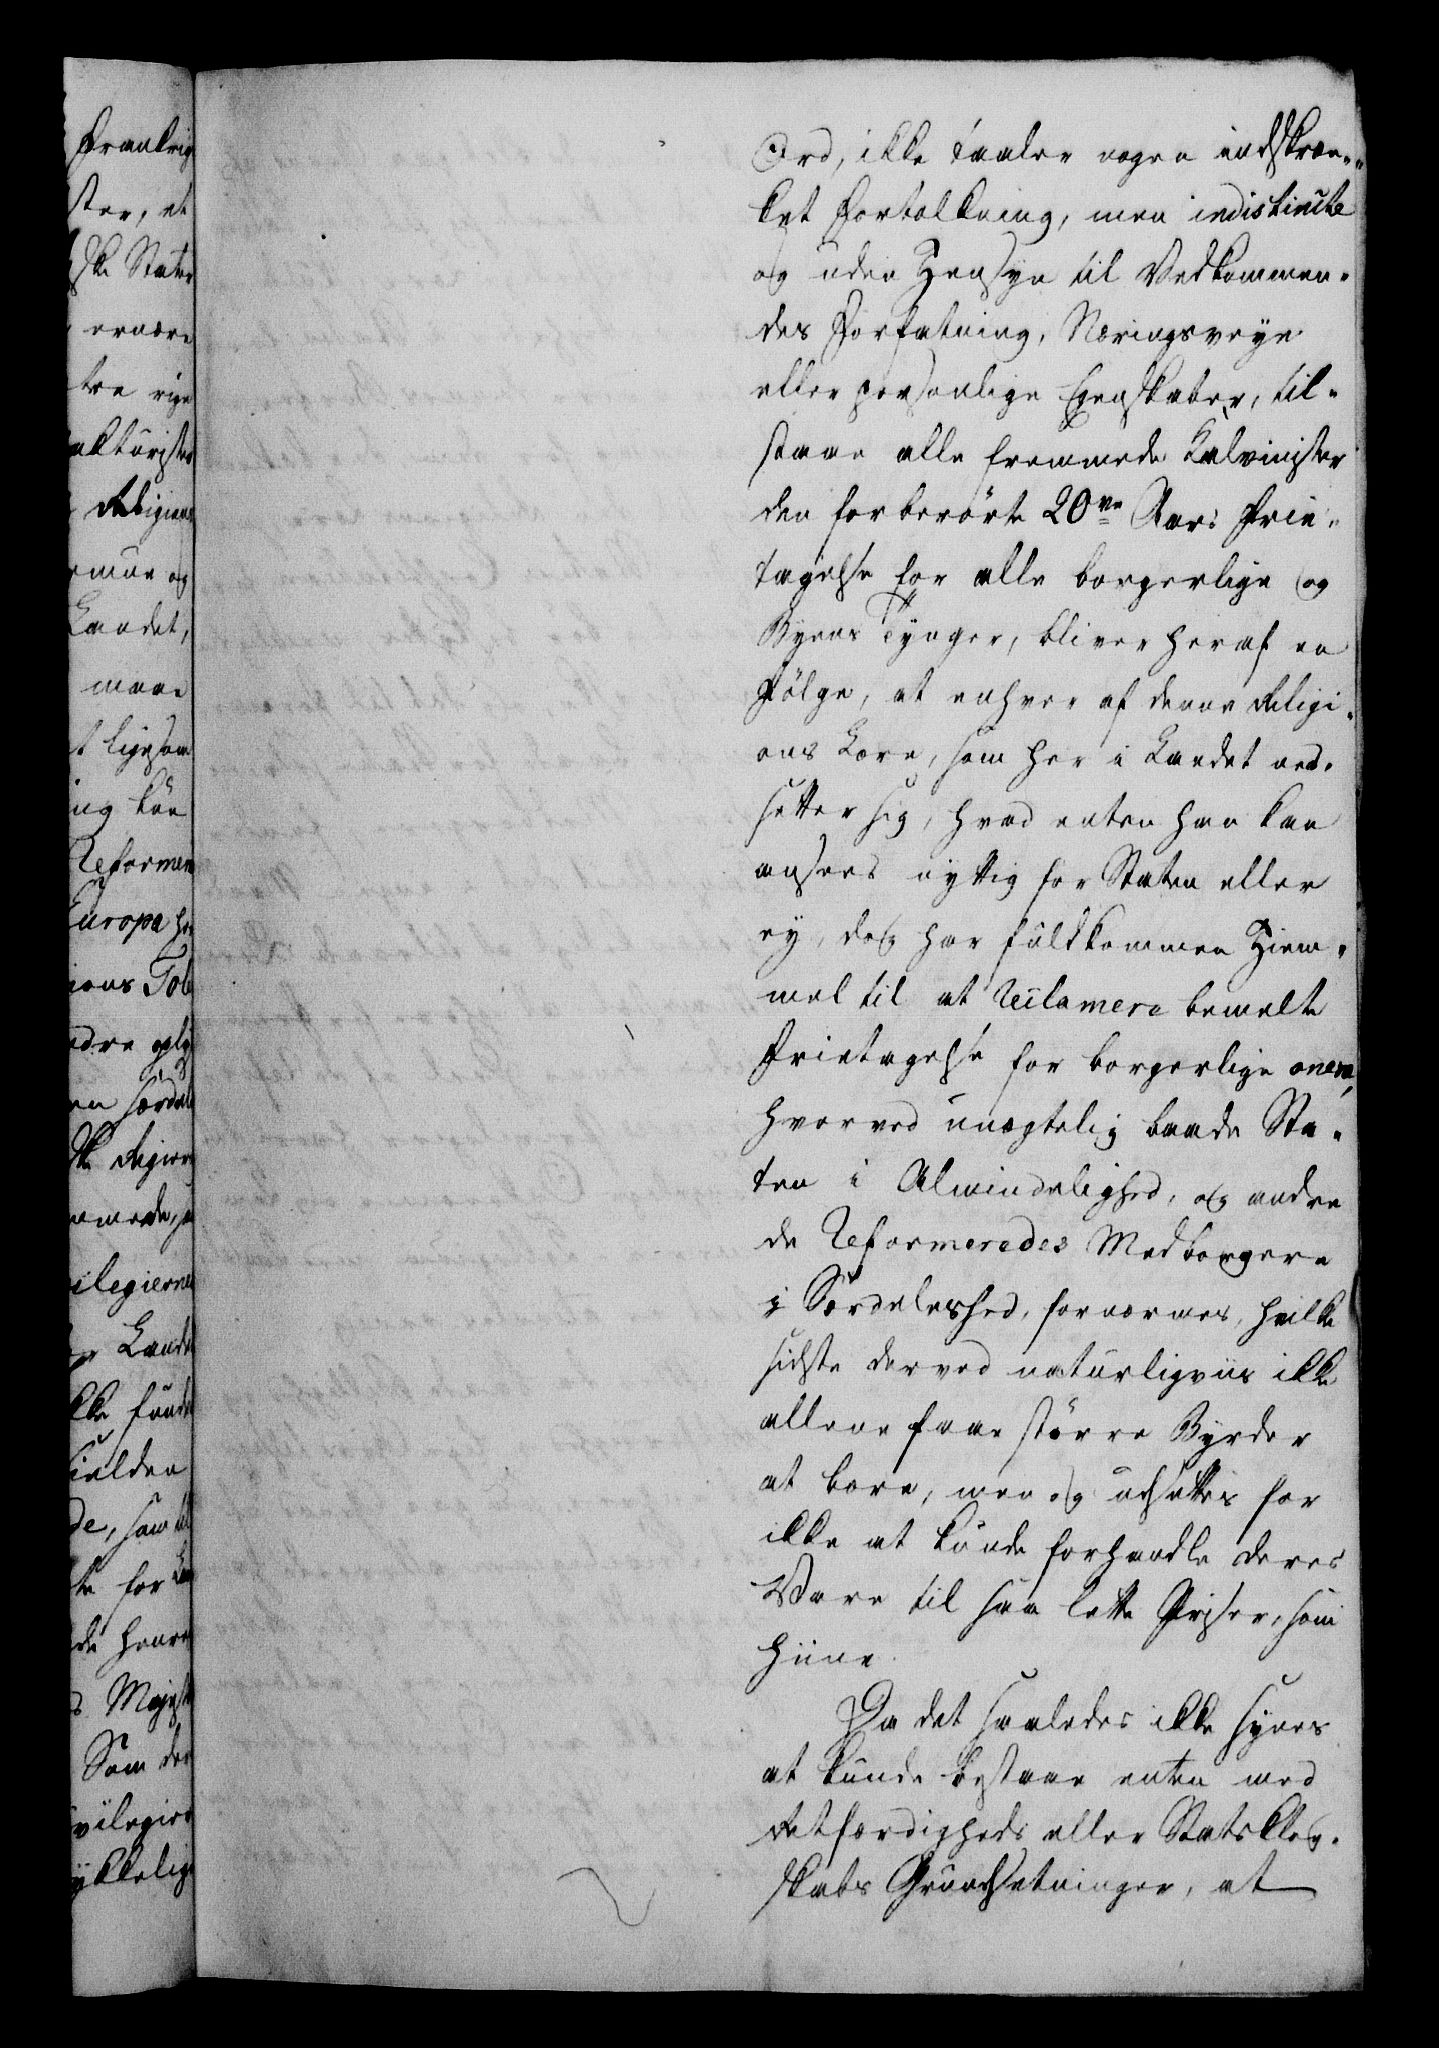 Ord, ikke taaler nogen indskræn-
ket Fortolkning, men indistincte
og uden Hensyn til Vedkommen-
des Forfatning, Næringsveye
eller personlige Egenskaber, til-
staae alle fremmede Kalvinister
den forberørte 20ve Aars Frie-
tagelse for alle borgerlige og
Byens Tynger, bliver heraf en
Følge, at enhver af denne Religi-
ons Lære, som her i Landet ned-
setter sig, hvad enten han kan
ansees nyttig for Staten eller
ey, dog har fuldkommen Hiem-
mel til at reclamere bemelte
Frietagelse for borgerlige onera,
hvorved unægtelig baade Sta-
ten i Almindelighed, og andre
de Reformeredes Medborgere
i Særdeleshed, fornærmes, hvilke
sidste derved naturligviis ikke
allene faae større Byrder
at bære, men og udsættes for
ikke at kunde forhandle deres
Vare til saa lette Priser, som
hiine.
Da det saaledes ikke synes
at kunde bestaae enten med
Retfærdigheds eller Statsklog-
skabs Grundsetninger, at
Frankrig
ster, et
ske Stater
ernære
tre rige
akturister
Religions
Landet,
maae
t ligesom
ing kun
Reformer
Europa
ions Tol
en særdel
ske Regier
ilegierne
Lande
kke funde
de, som
te for
s Majest
Som der
vilegier
ykkelig